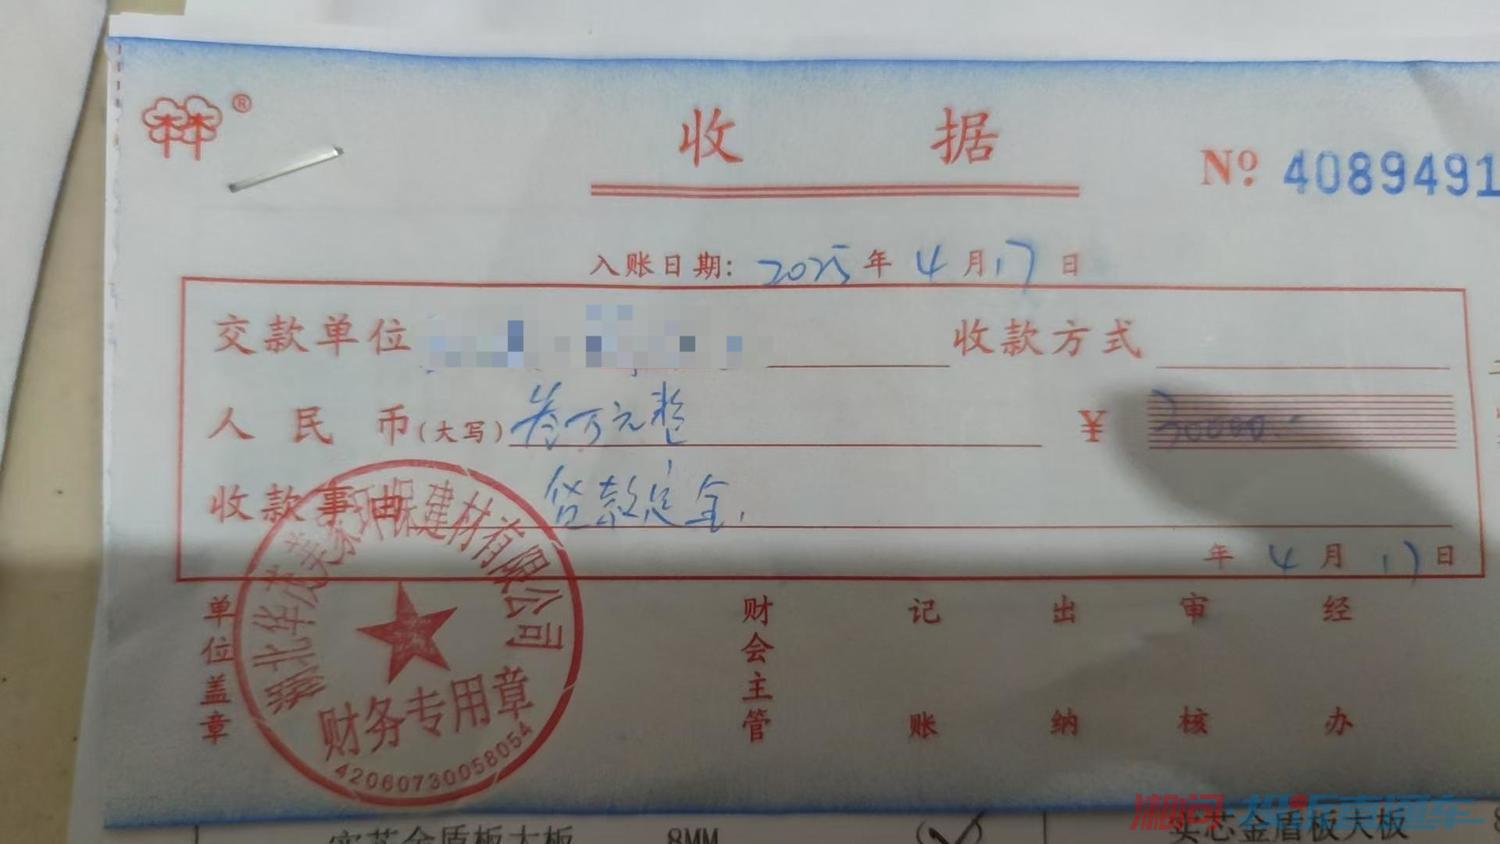 林®
收据
№ 4089491
入账日期：2025年4月17日
交款单位 收款方式
人民币(大写) 叁万元整 ¥ 30000.
收款事由 货款定金.
年4月17日
单位盖章 财会主管 记账 出纳 审核 经办
湖北华茂美家环保建材有限公司
财务专用章
42060730058054
实芯金盾板大板 8MM (✓) 实芯金盾板大板 8
湘问·投诉直通车